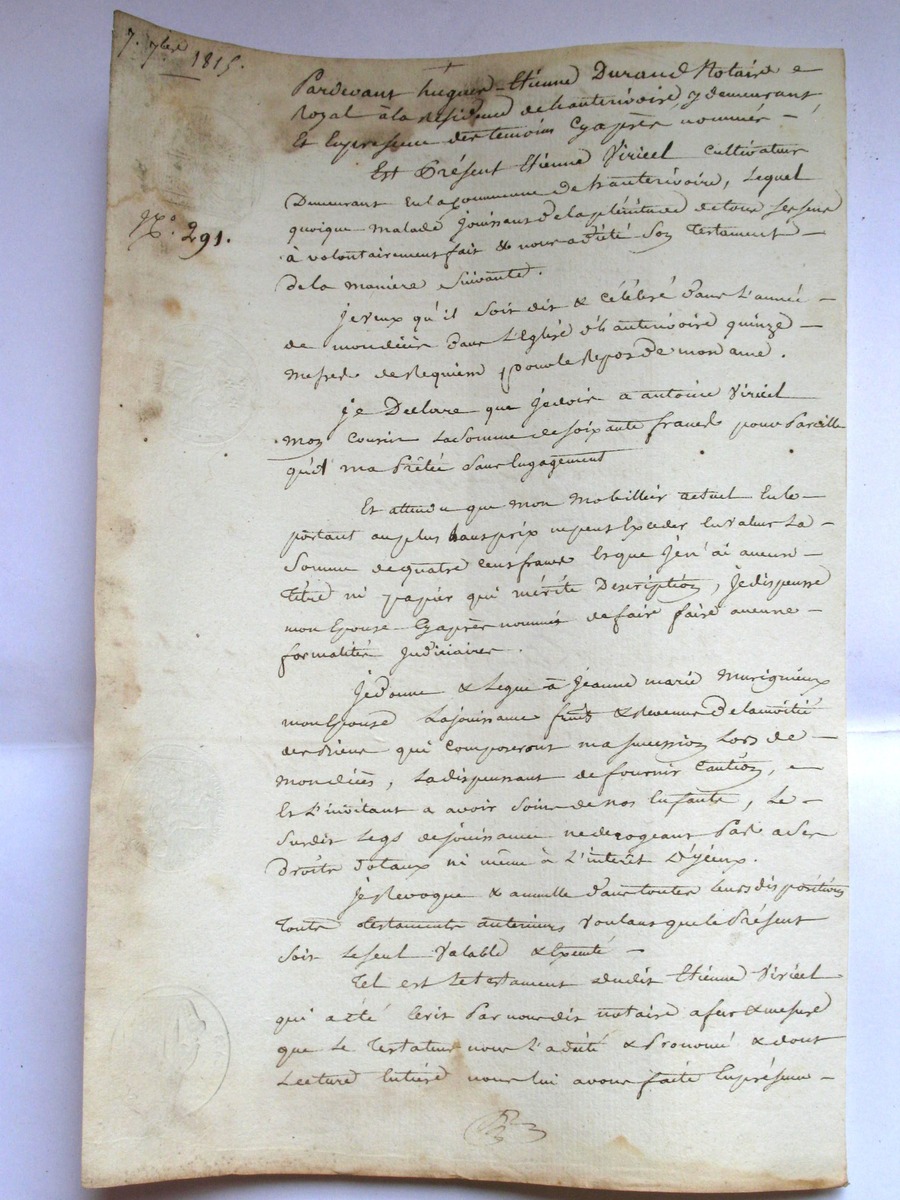 7. 7bre 1815.
No. 291.
Pardevant hugues-Etiénne Durand Notaire
Royal à la Résidence de hauterivoire y demeurant
Et En presence des temoins Cyaprès nommés –
Est Présent Etiénne Viricel Cultivateur
Demeurant En la Commune de hauterivoire, Lequel
quoique malade Jouissant de la plénitude de tous ses sens
à volontairement fait & nous a dicté Son Testament –
de la maniere Suivante.
Je veux qu'il soit dit & célébré dans L'année –
de mon décès dans L'Eglise d'hauterivoire quinze –
messes de Requiem, pour le Repos de mon ame.
Je Declare que Je dois a antoine Viricel
mon Cousin La Somme de soixante francs pour Pareille
qu'il ma Prêtée Sans Engagement
Et attendu que mon mobillier actuel En le –
portant au plus haut prix ne peut Exceder En valeur La –
Somme de quatre Cens francs Et que Je n'ai aucun –
Titre ni papier qui mérite Description, Je dispense
mon Epouse Cyaprès nommée de fair faire aucune –
formalités Judiciaires.
Je donne & Legue à Jeanne marie murigneux
mon Epouse La Jouissance fruits & Revenus De la moitié
des Biens qui Composeront ma succession Lors de –
mon décès, La dispensant de fournir Caution,
Et L'invitant a avoir Soins de nos Enfants, Le –
Susdit Legs de Jouissance ne derogeant Pas a Ses
Droits dotaux ni même à L'interêt D'yceux.
Je Révoque & annulle dans toutes Leurs dispositions
Touts testaments anterieurs Voulant que le Présent
Soit Le Seul Valable & Exécuté –
Tel est Le testament dudit Etiénne Viricel
qui a été Ecrit Par nous dit notaire a fur & mesure
que Le Testateur nous L'a dicté & Prononcé & dont
Lecture Entiére nous lui avons faite En présence –